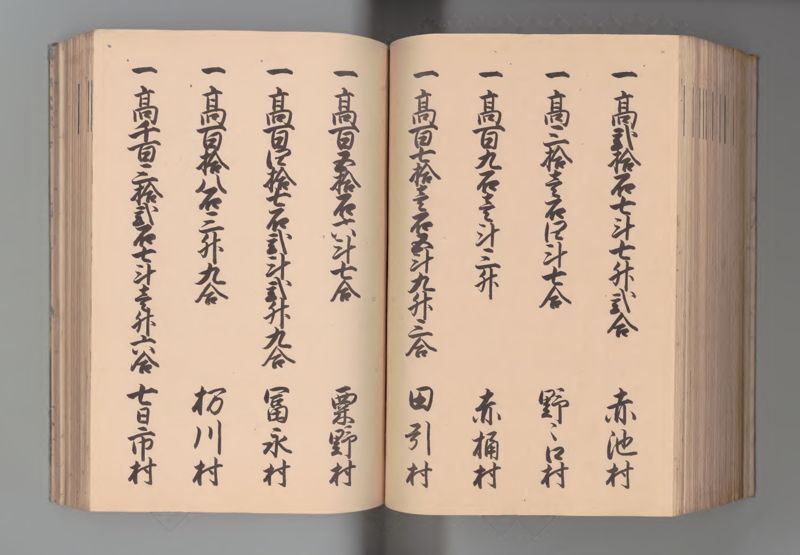 一高弐拾石七斗七升弐合 赤池村
一高三拾壱石四斗七合 野々口村
一高百九石壱斗三升 赤桶村
一高百七拾壱石五斗九升三合 田引村
一高百五拾石六斗七合 粟野村
一高百四拾七石弐斗弐升九合 冨永村
一高百拾八石三升九合 栃川村
一高千百三拾弐石七斗壱升六合 七日市村